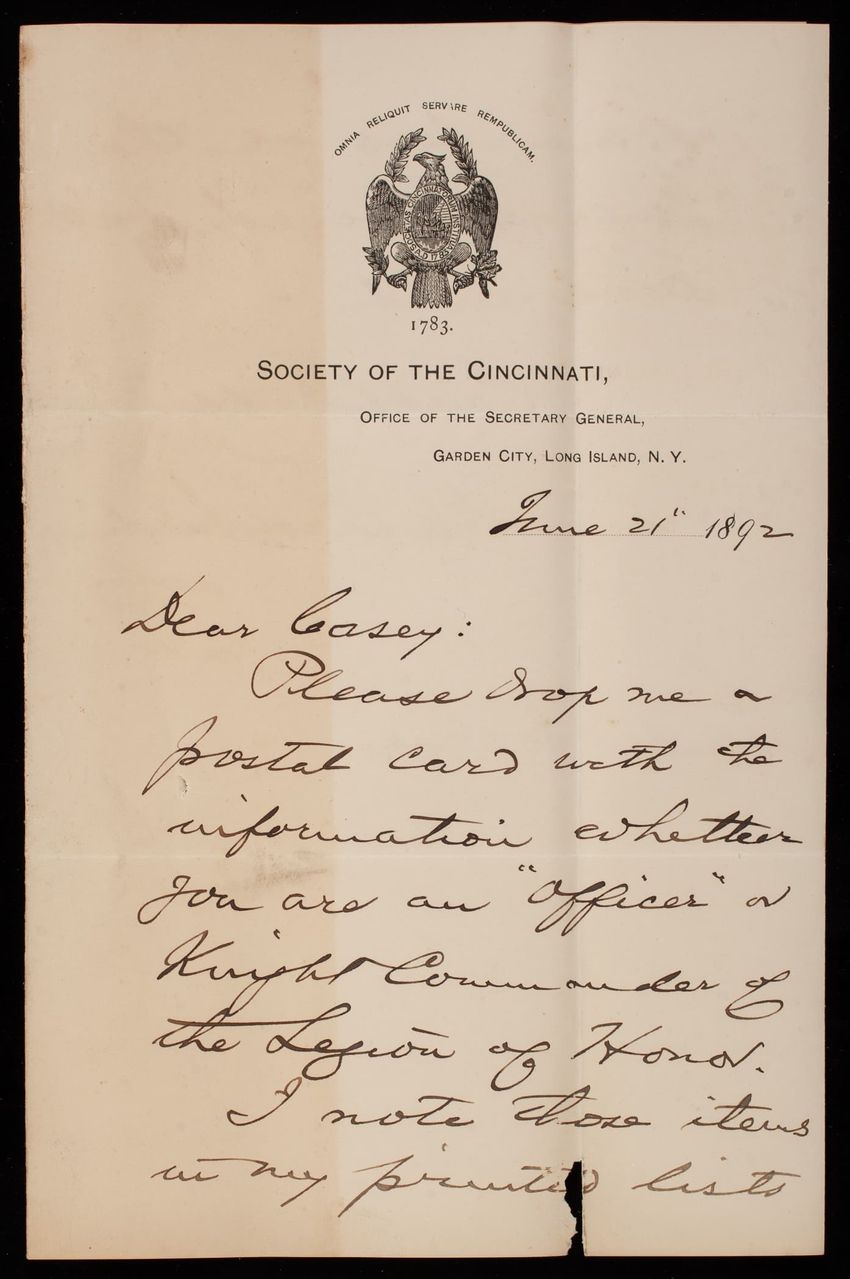 OMNIA RELIQUIT SERVARE REMPUBLICAM.
SOCIETAS CINCINNATORUM INSTITUTA A.D. 1783.
1783.
SOCIETY OF THE CINCINNATI,
OFFICE OF THE SECRETARY GENERAL,
GARDEN CITY, LONG ISLAND, N. Y.
June 21" 1892
Dear Casey:
Please drop me a
postal card with the
information whether
you are an "officer" or
Knight Commander of
the Legion of Honor.
I note those items
in my printed lists